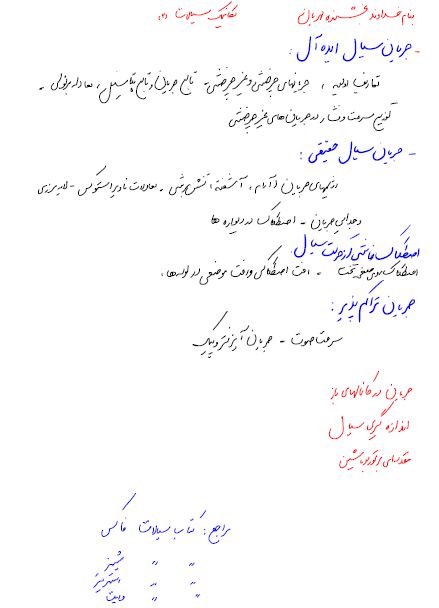 بنام خداوند بخشنده مهربان مکانیک سیالات (۲)
- جریان سیال ایده آل :
تعاریف اولیه ، جریانهای چرخشی و غیر چرخشی - تابع جریان و تابع پتانسیل ، معادله برنولی -
توزیع سرعت و فشار در جریان های غیر چرخشی
- جریان سیال حقیقی :
رژیمهای جریان (آرام ، آشفته) تنش برشی - معادلات ناویر استوکس - لایه مرزی
و جدایی جریان - اصطکاک در دیواره ها
اصطکاک ناشی از حرکت سیال
اصطکاک سطح تخت - افت اصطکاکی و افت موضعی در لوله ها ،
جریان تراکم پذیر :
سرعت صوت - جریان آیزنتروپیک
جریان در کانالهای باز
اندازه گیری سیال
مقدمه ای بر توربو ماشین
مراجع : کتاب سیالات فاکس
" " شیمز
" " استریتر
" " وایت